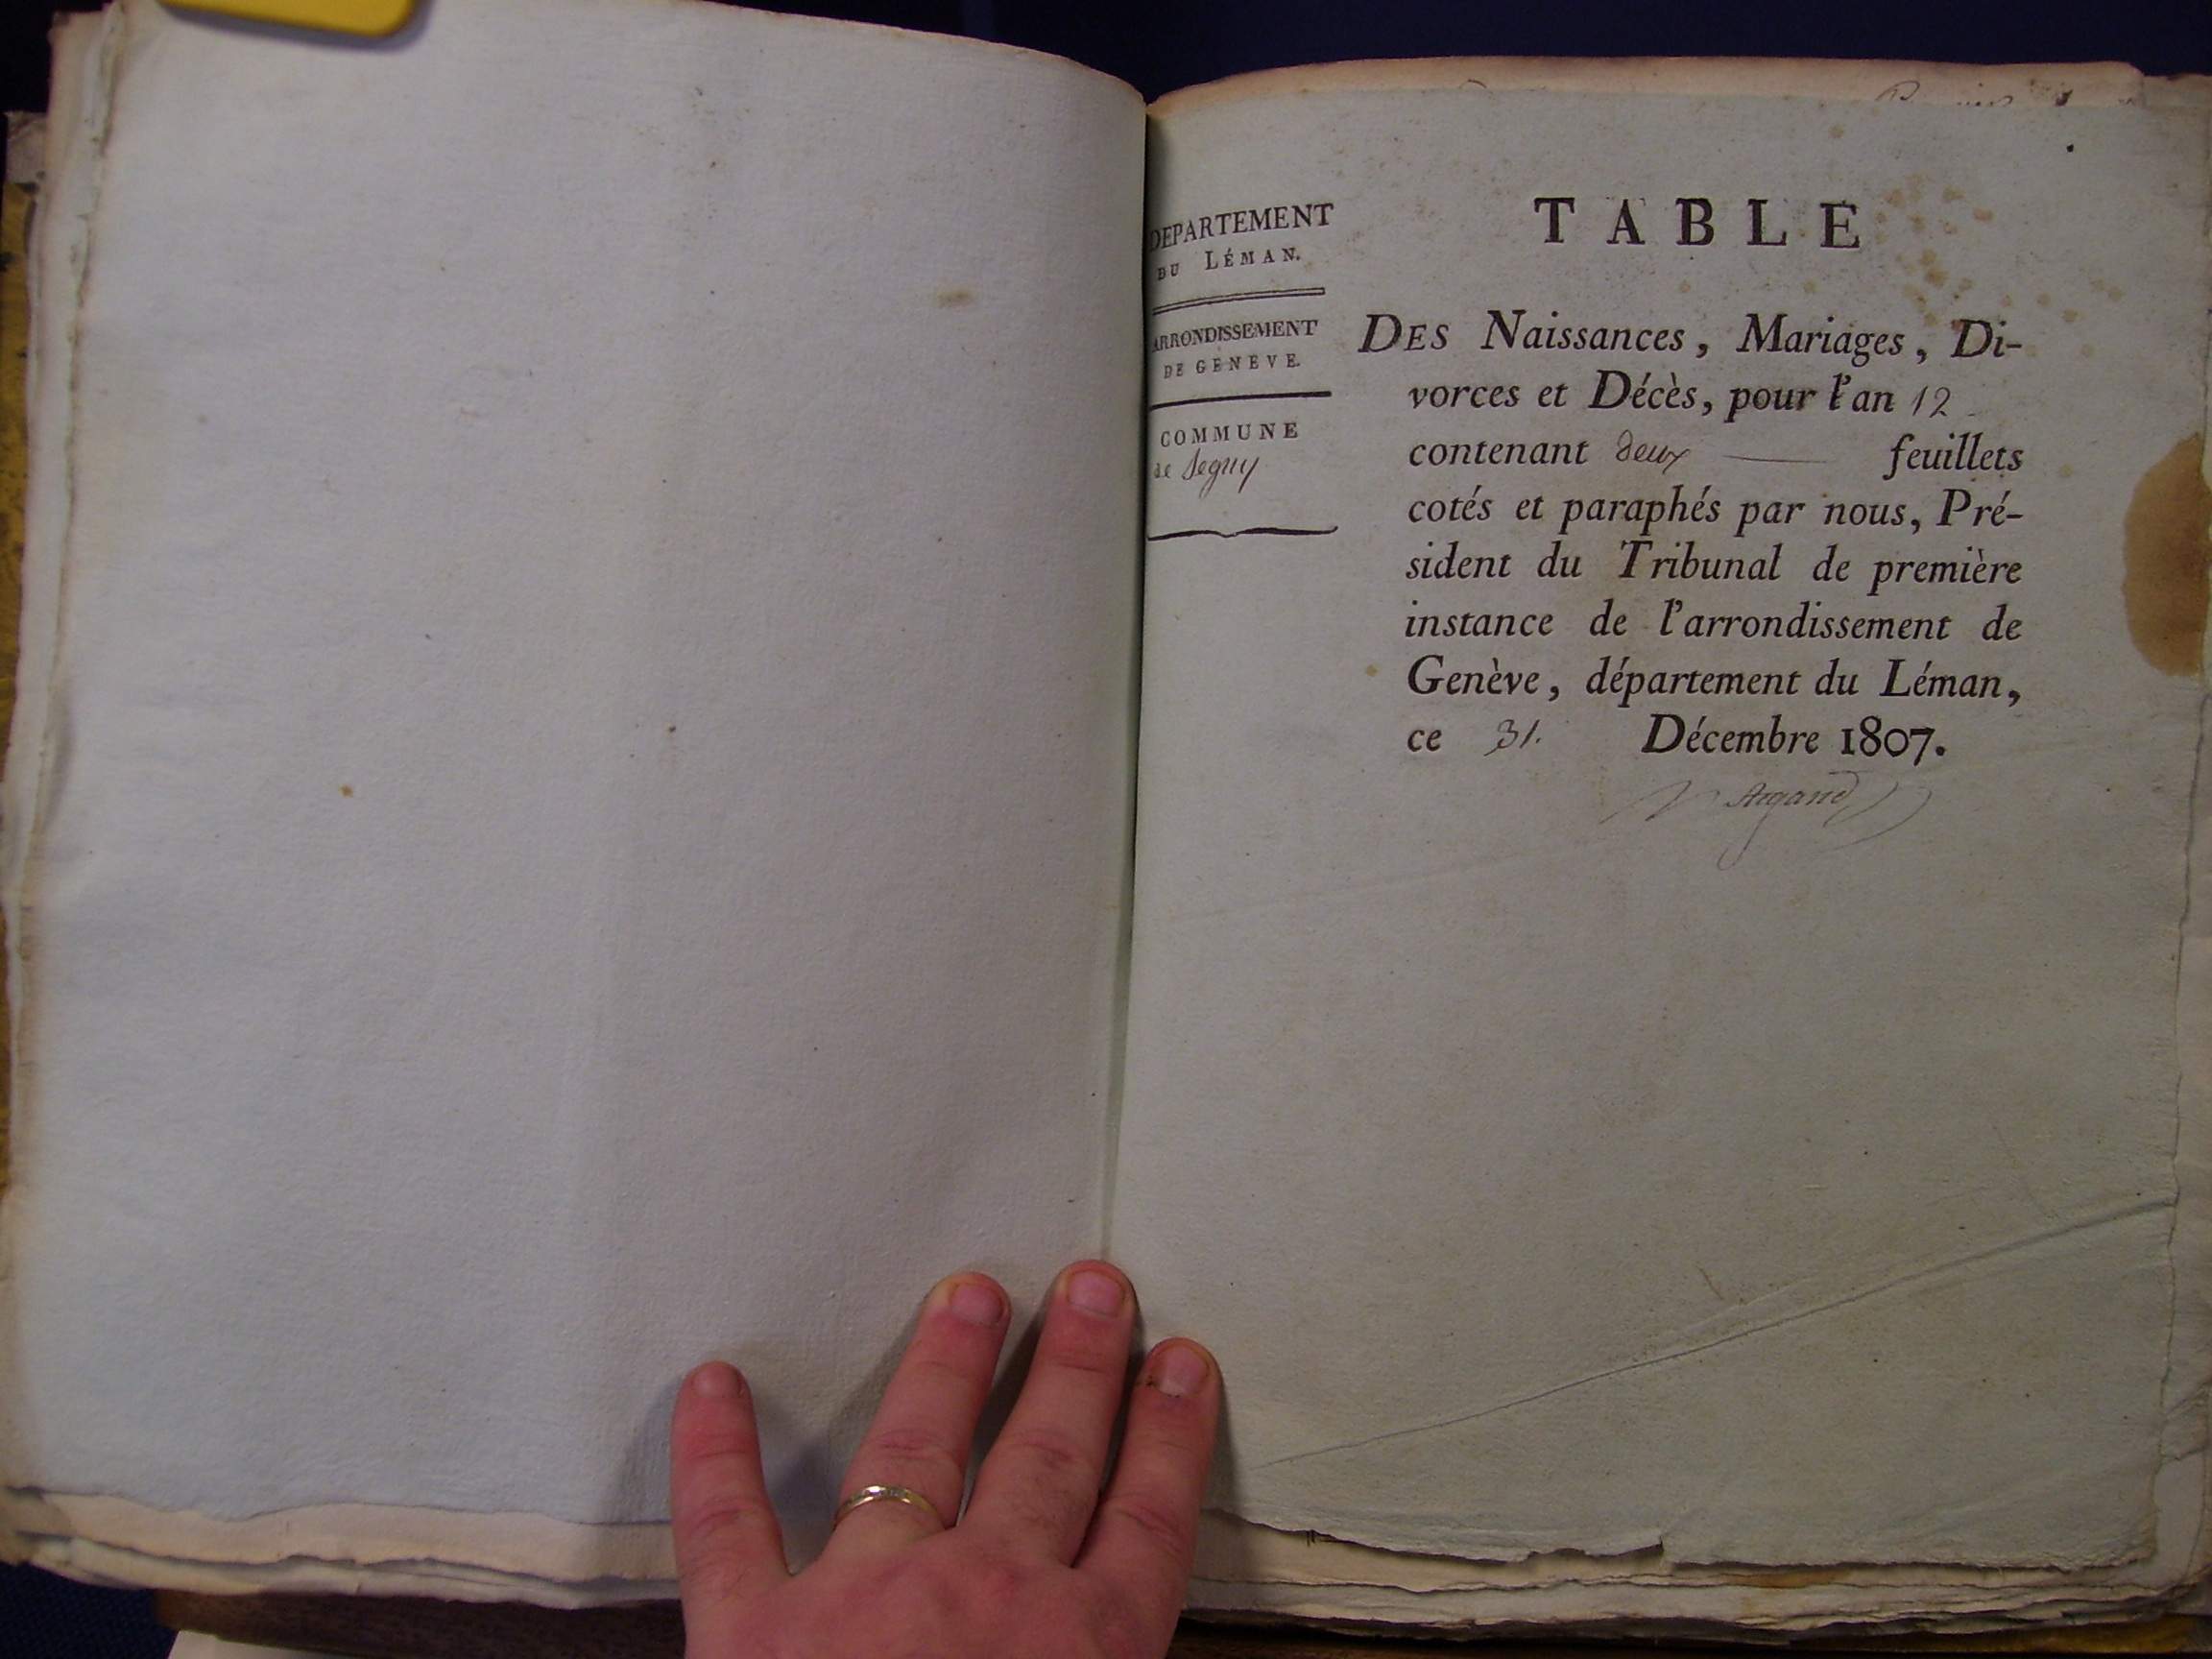 DEPARTEMENT
DU LÉMAN.
ARRONDISSEMENT
DE GENEVE.
COMMUNE
de Segny
TABLE
DES Naissances, Mariages, Di-
vorces et Décès, pour l'an 12
contenant deux feuillets
cotés et paraphés par nous, Pré-
sident du Tribunal de première
instance de l'arrondissement de
Genève, département du Léman,
ce 31. Décembre 1807.
Argand